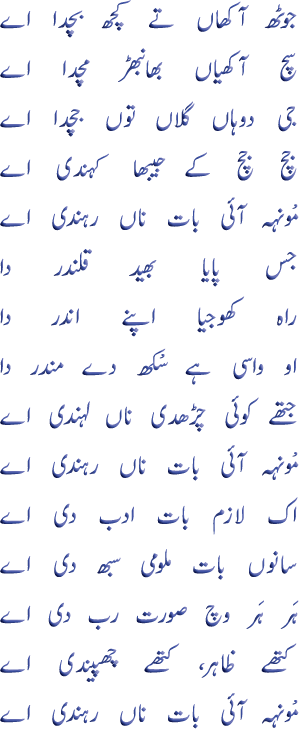 جوٹھ آکھاں تے کچھ بچدا اے
سچ آکھیاں بھانبھڑ مچدا اے
جی دوہاں گلاں توں جچدا اے
جچ جچ کے جیبھا کہندی اے
مُونہہ آئی بات ناں رہندی اے
جس پایا بھید قلندر دا
راہ کھوجیا اپنے اندر دا
او واسی ہے سُکھ دے مندر دا
جتھے کوئی چڑھدی ناں لہندی اے
مُونہہ آئی بات ناں رہندی اے
اک لازم بات ادب دی اے
سانوں بات ملومی سبھ دی اے
ہَر ہَر وچ صورت رب دی اے
کتھے ظاہر، کتھے چھپیندی اے
مُونہہ آئی بات ناں رہندی اے